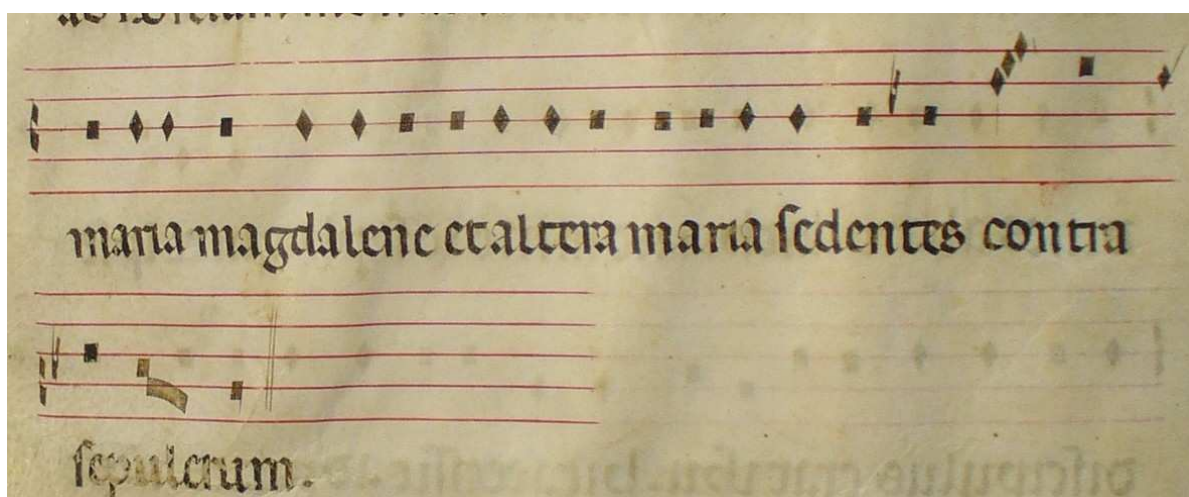 maria magdalene et altera maria sedentes contra
sepulcrum.